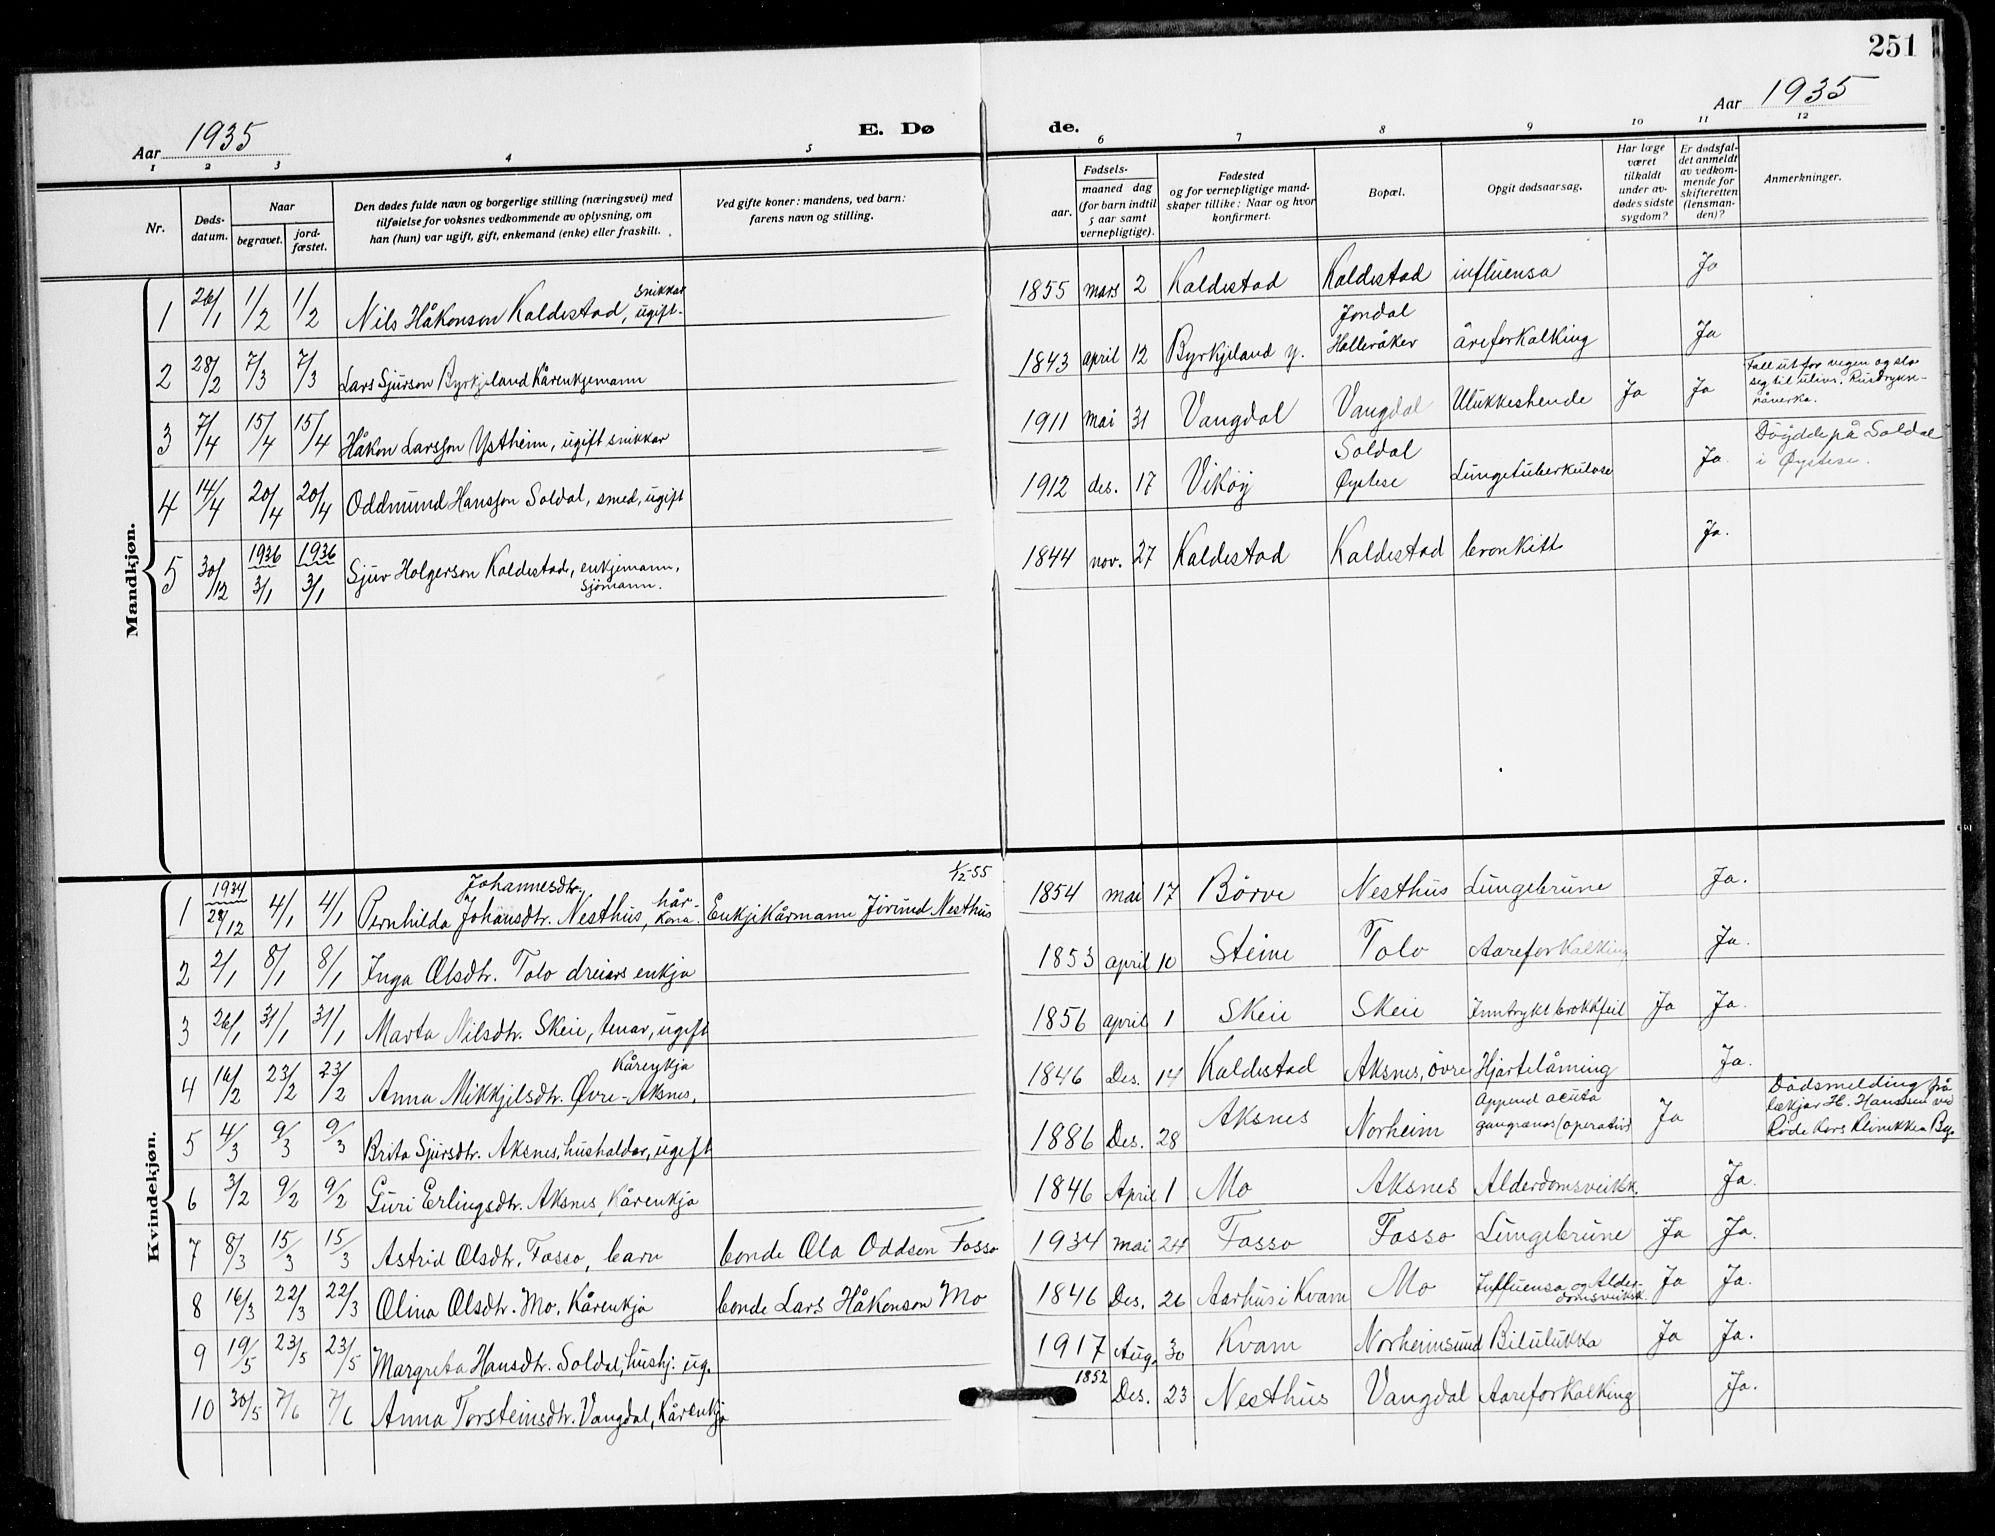 251
Aar 1935
E. Dø
de.
Aar 1935
1 2 3 4 5 6 7 8 9 10 11 12
Nr.
Døds-
datum.
Naar
begravet.
jord-
fæstet.
Den dødes fulde navn og borgerlige stilling (næringsvei) med
tilføielse for voksnes vedkommende av oplysning, om
han (hun) var ugift, gift, enkemand (enke) eller fraskilt.
Ved gifte koner: mandens, ved barn:
farens navn og stilling.
Fødsels-
aar.
maaned dag
(for barn indtil
5 aar samt
vernepligtige).
Fødested
og for vernepligtige mand-
skaper tillike: Naar og hvor
konfirmert.
Bopæl.
Opgit dødsaarsag.
Har læge
været
tilkaldt
under av-
dødes sidste
sygdom?
Er dødsfal-
det anmeldt
av vedkom-
mende for
skifteretten
(lensman-
den)?
Anmerkninger.
Mandkjøn.
1 26/1 1/2 1/2 Nils Håkonson Kaldestad, snikkar ugift. 1855 mars 2 Kaldestad Kaldestad influensa Ja
2 28/2 7/3 7/3 Lars Sjurson Byrkjeland Kårenkjemann 1843 april 12 Byrkjeland y. Jondal Halleråker åreforkalking Ja
3 7/4 15/4 15/4 Håkon Larsson Ystheim, ugift snikkar 1911 mai 31 Vangdal Vangdal Ulukkeshende Ja Ja Fall ut for vegen og slo
seg til ulivs.
4 14/4 20/4 20/4 Oddmund Hansson Soldal, smed, ugift 1912 des. 17 Vikøy Soldal Øystese Lungetuberkulose Ja. Døydde på Soldal
i Øystese.
5 30/12 1936 3/1 1936 3/1 Sjur Holgerson Kaldestad, enkjemann, sjömann. 1844 nov. 27 Kaldestad Kaldestad bronkitt Ja.
Kvindekjøn.
1 1934 28/12 4/1 4/1 Pernhilda Johannesdtr. Johansdtr. Nesthus, kårkona. Enkje Kårmann Jörund Nesthus 1/12-55 1854 mai 17 Börve Nesthus Lungebrune Ja.
2 2/1 8/1 8/1 Inga Olsdtr. Tolo dreiars enkja 1853 april 10 Steine Tolo Aareforkalking Ja.
3 26/1 31/1 31/1 Marta Nilsdtr. Skeie, tenar, ugift 1856 april 1 Skeie Skeie Inntrykt brokkfeil Ja Ja.
4 16/2 23/2 23/2 Anna Mikkjelsdtr. Øvre-Aksnes, Kårenkja 1846 Des. 14 Kaldestad Aksnes, övre Hjartelåming Ja.
5 4/3 9/3 9/3 Brita Sjursdtr. Aksnes, hushaldar, ugift 1886 Des. 28 Aksnes Norheim Append acuta
gangrænos (operativ) Ja Dødsmelding frå
lækjar H. Hanssen ved
Røde Kors Klinikken Bg.
6 3/2 9/2 9/2 Guri Erlingsdtr. Aksnes, Kårenkja 1846 April 1 Mo Aksnes Alderdomsveiksk. Ja.
7 8/3 15/3 15/3 Astrid Olsdtr. Fosso, barn bonde Ola Oddson Fosso 1934 mai 24 Fosso Fosso Lungebrune Ja Ja.
8 16/3 22/3 22/3 Olina Olsdtr. Mo, Kårenkja bonde Lars Håkonson Mo 1846 Des. 26 Aarhus i Kvam Mo Influensa og Alder-
domsveiksk. Ja Ja.
9 19/5 23/5 23/5 Margreta Hansdtr. Soldal, hushj. ug. 1917 Aug. 30 Kvam Norheimsund Bilulukka Ja Ja.
10 30/5 7/6 7/6 Anna Torsteinsdtr. Vangdal, Kårenkja 1852 Des. 23 Nesthus Vangdal Aareforkalking Ja.